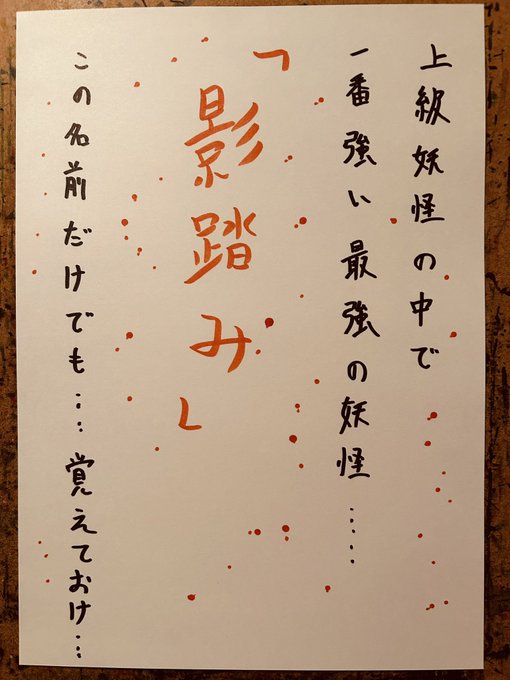 上級妖怪の中で
一番強い最強の妖怪……
「影踏み」
この名前だけでも…覚えておけ…